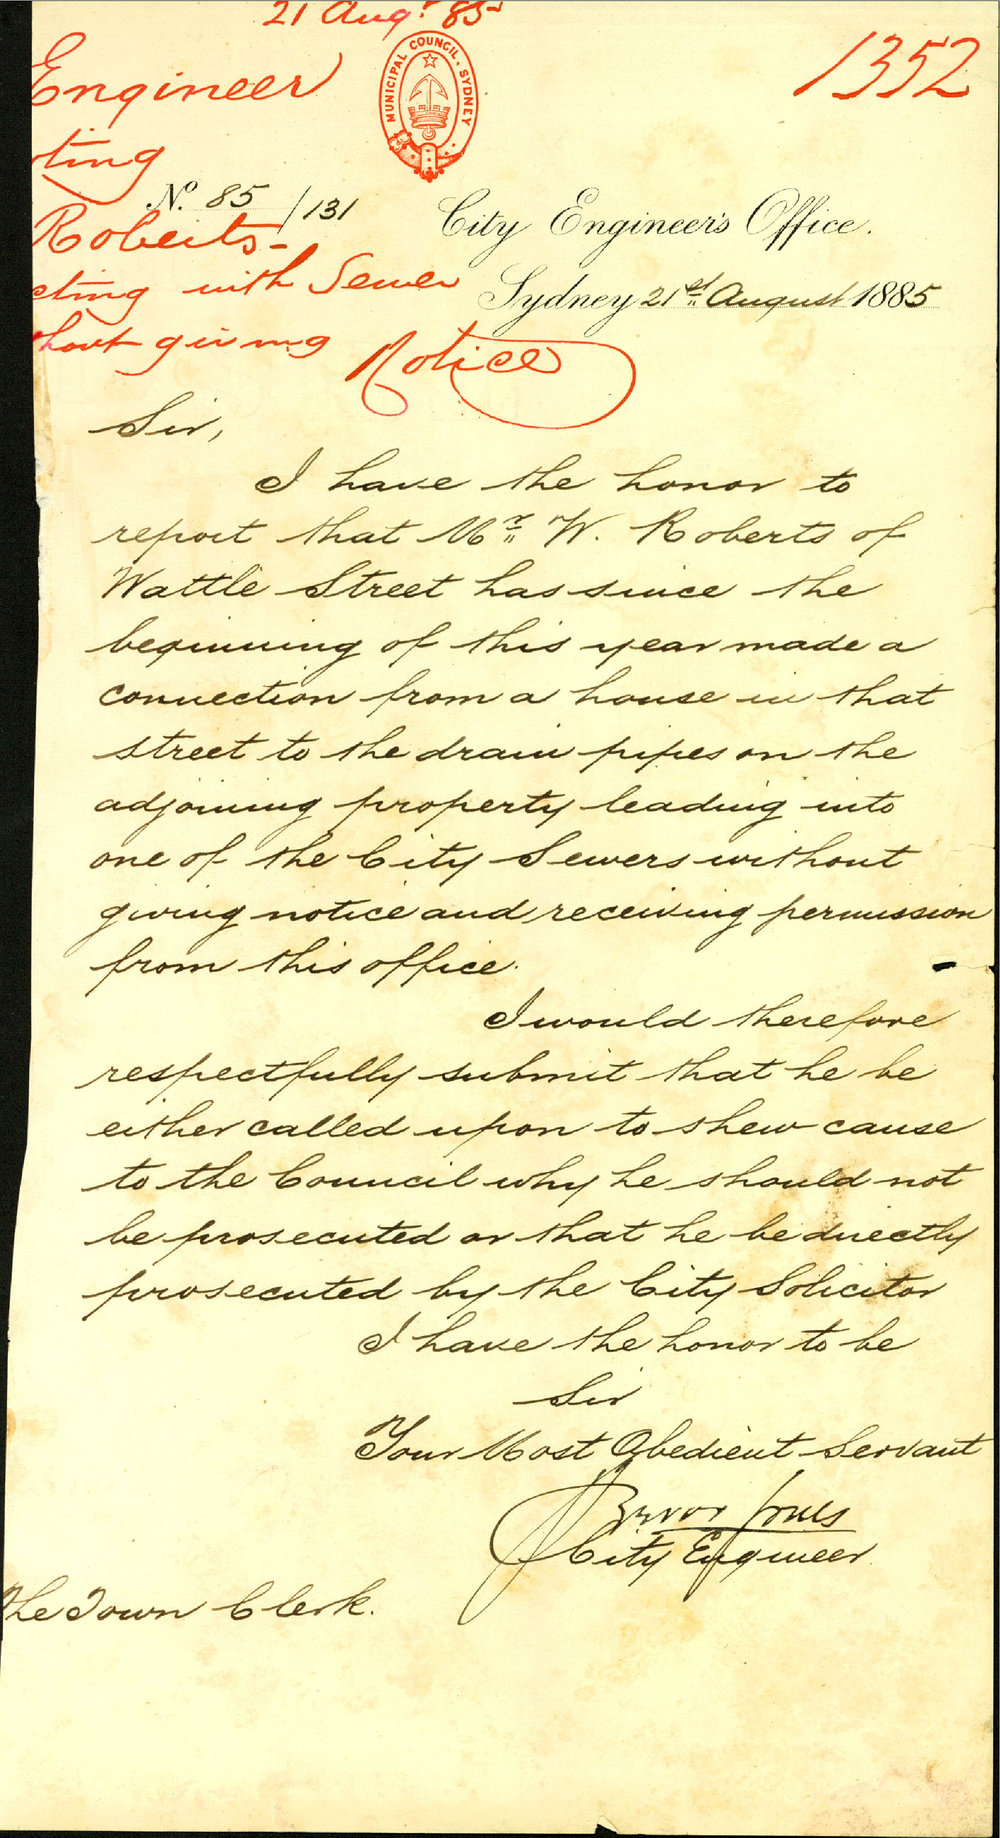 21 Aug. 85
1352
MUNICIPAL COUNCIL. SYDNEY
Engineer
ting
No. 85/131
Roberts -
cting with Sewer
hout giving Notice
City Engineer's Office.
Sydney 21st August 1885
Sir,
I have the honor to
report that Mr. W. Roberts of
Wattle Street has since the
beginning of this year made a
connection from a house in that
street to the drain pipes on the
adjoining property leading into
one of the City Sewers without
giving notice and receiving permission
from this office.
I would therefore
respectfully submit that he be
either called upon to shew cause
to the Council why he should not
be prosecuted or that he be directly
prosecuted by the City Solicitor
I have the honor to be
Sir
Your Most Obedient Servant
Trevor Jones
City Engineer.
The Town Clerk.